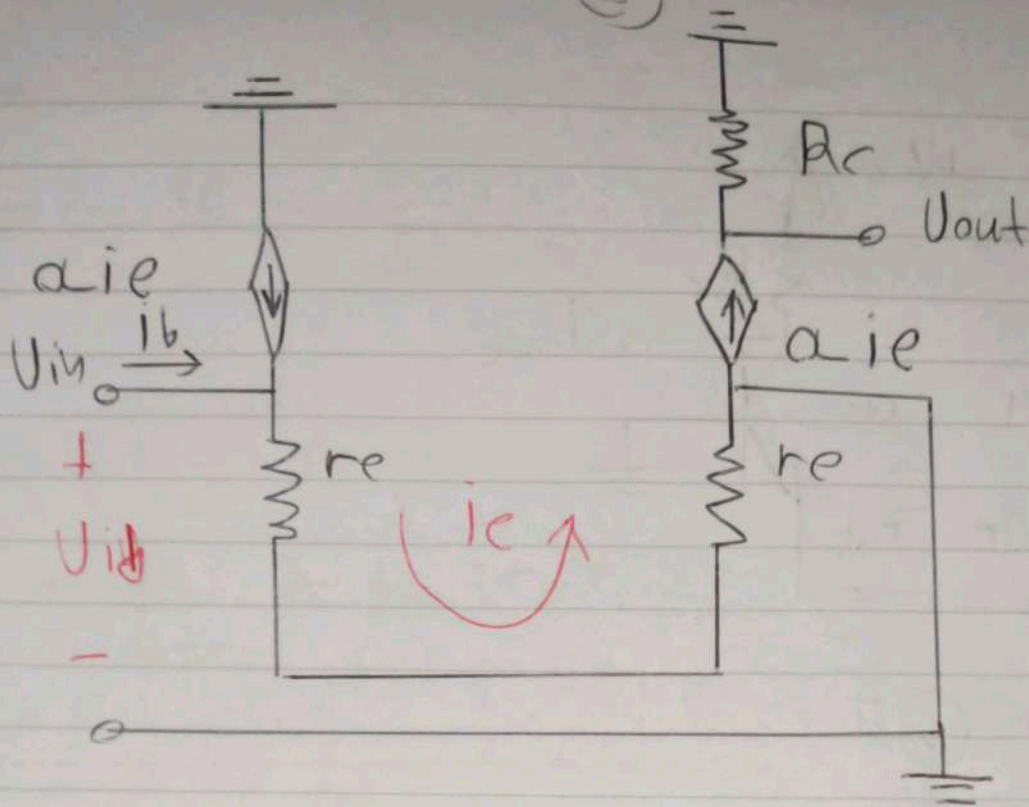 Rc
Vout
aie
ib
Vin
aie
+
re
re
ie
Vid
-